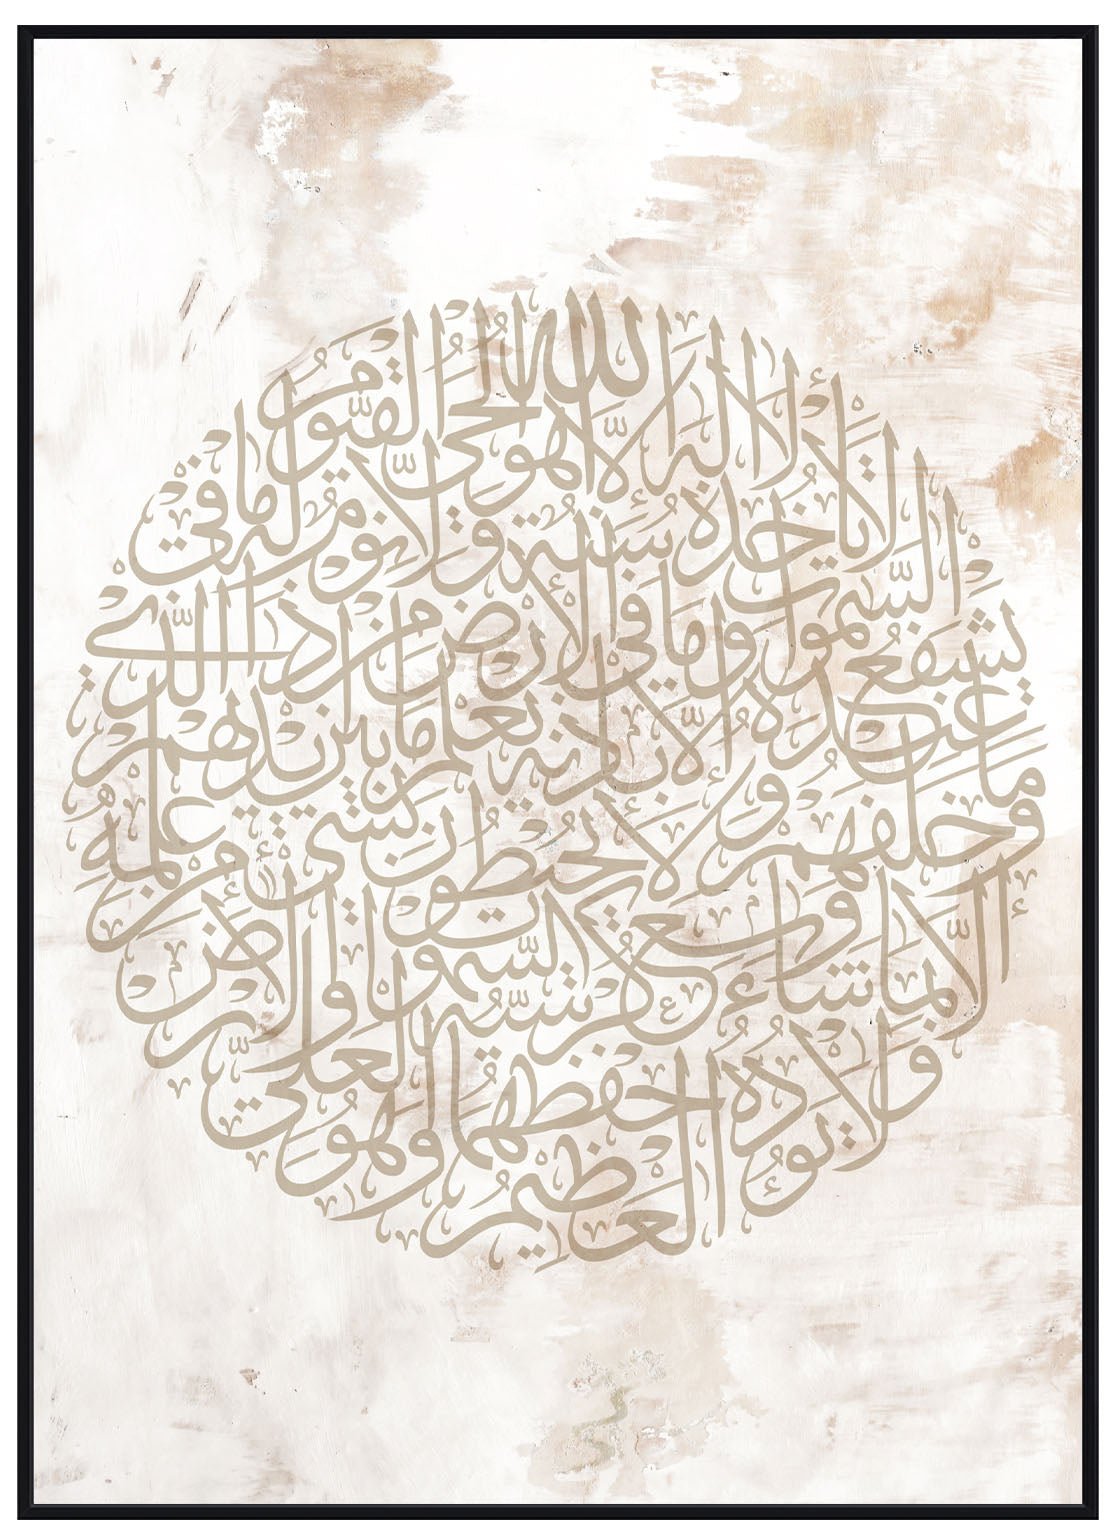 ٱللَّهُ لَا إِلَٰهَ إِلَّا هُوَ ٱلْحَيُّ ٱلْقَيُّومُ
لَا تَأْخُذُهُ سِنَةٌ وَلَا نَوْمٌ لَهُ مَا فِي
ٱلسَّمَٰوَاتِ وَمَا فِي ٱلْأَرْضِ مَنْ ذَا ٱلَّذِي
يَشْفَعُ عِنْدَهُ إِلَّا بِإِذْنِهِ يَعْلَمُ مَا بَيْنَ أَيْدِيهِمْ
وَمَا خَلْفَهُمْ وَلَا يُحِيطُونَ بِشَيْءٍ مِنْ عِلْمِهِ
إِلَّا بِمَا شَاءَ وَسِعَ كُرْسِيُّهُ ٱلسَّمَٰوَاتِ وَٱلْأَرْضَ
وَلَا يَئُودُهُ حِفْظُهُمَا وَهُوَ ٱلْعَلِيُّ
ٱلْعَظِيمُ